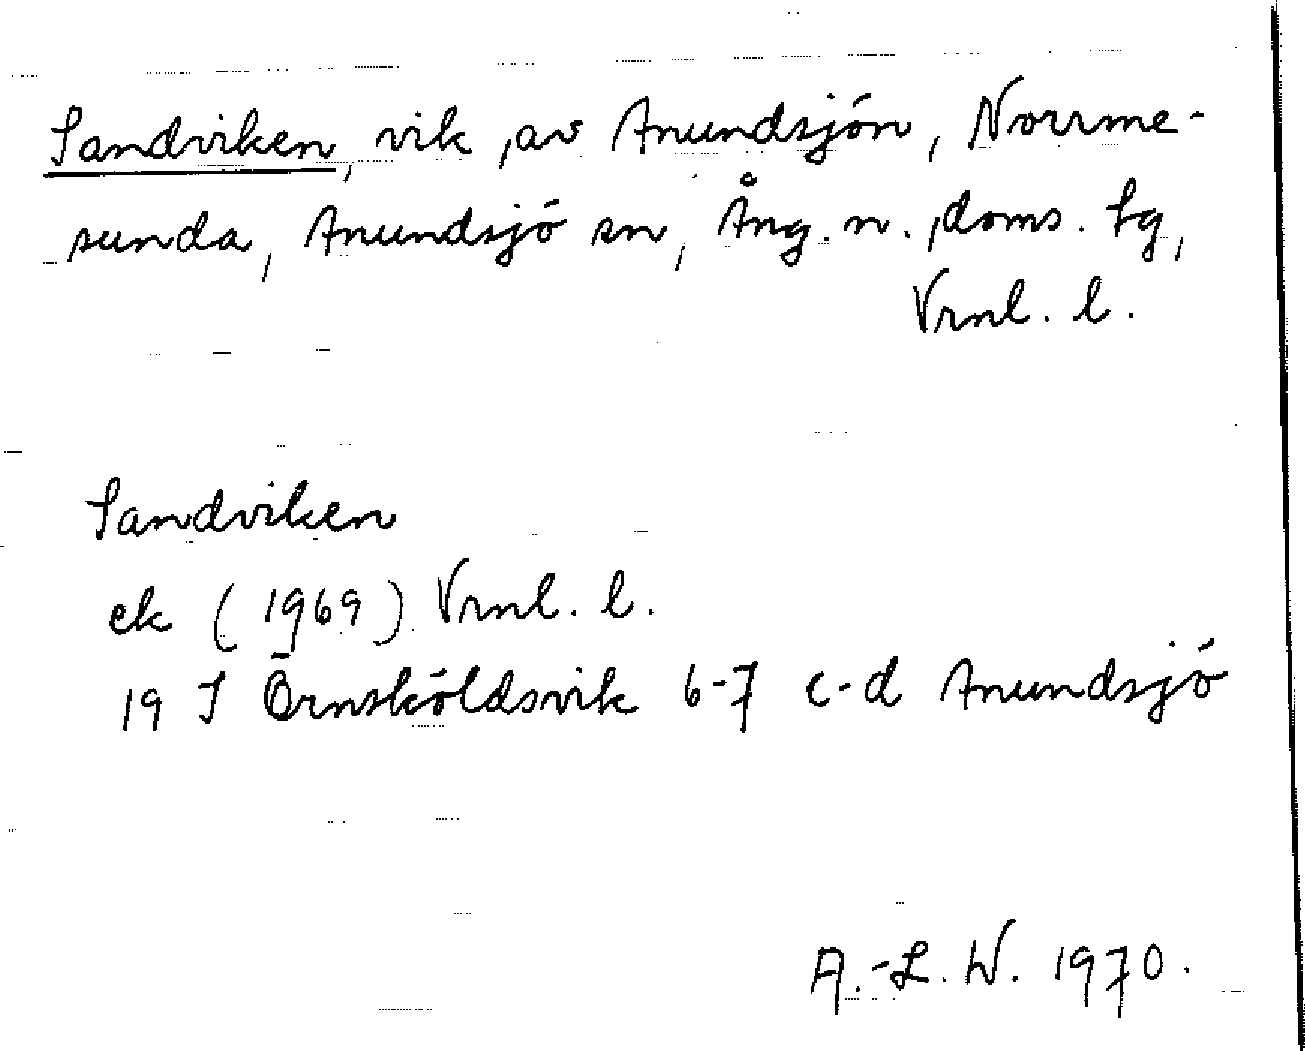 Sandviken, vik av Anundsjön, Norrme-
sunda, Anundsjö sn, Ång. n. doms. tg,
Vrnl. l.
Sandviken
ek (1969) Vrnl. l.
19 J Örnsköldsvik 6-7 c-d Anundsjö
A.-L. W. 1970.